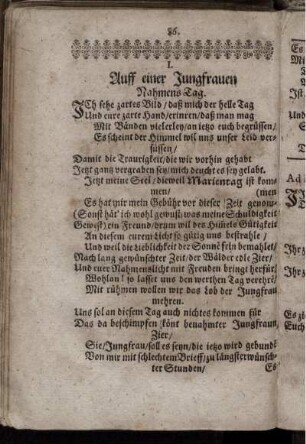 86.
I.
Auff einer Jungfrauen
Nahmens Tag.
ICh sehe zartes Bild/ daß mich der helle Tag
Und eure zarte Hand/ erinren/ daß man mag
Mit Bänden vielerley/ an ietzo euch begrüssen/
Es scheint der Himmel will uns unser Leid ver-
süssen/
Damit die Traurigkeit/ die wir vorhin gehabt
Jetzt gantz vergraben sey/ mich deucht es sey gelabt.
Jetzt meine Seel/ dieweil Marientag ist kom-
men/ (men
Es hat mir mein Gebühr vor dieser Zeit genom-
(Sonst hät' ich wohl gewust/ was meine Schuldigkeit
Gewest) ein Freund/ drum wil des Himels Gütigkeit
An diesem eurem Licht so gütig uns bestrahle/
Und weil die Lieblichkeit der Sonne Feln bemahlet/
Nach lang gewünschter Zeit/ der Wälder edle Zier/
Und euer Nahmenslicht mit Freuden bringt herfür/
Wohlan! so lasset uns den werthen Tag verehre/
Mit rühmen wollen wir das Lob der Jungfrau
mehren.
Und sol an diesem Tag auch nichtes kommen für
Das da beschimpfen könt benahmter Jungfraun
Zier/
Sie/ Jungfrau/ soll es seyn/ die ietzo wird gebunde
Von mir mit schlechtem Brieff/ zu längst erwünsch-
ter Stunden/
Es